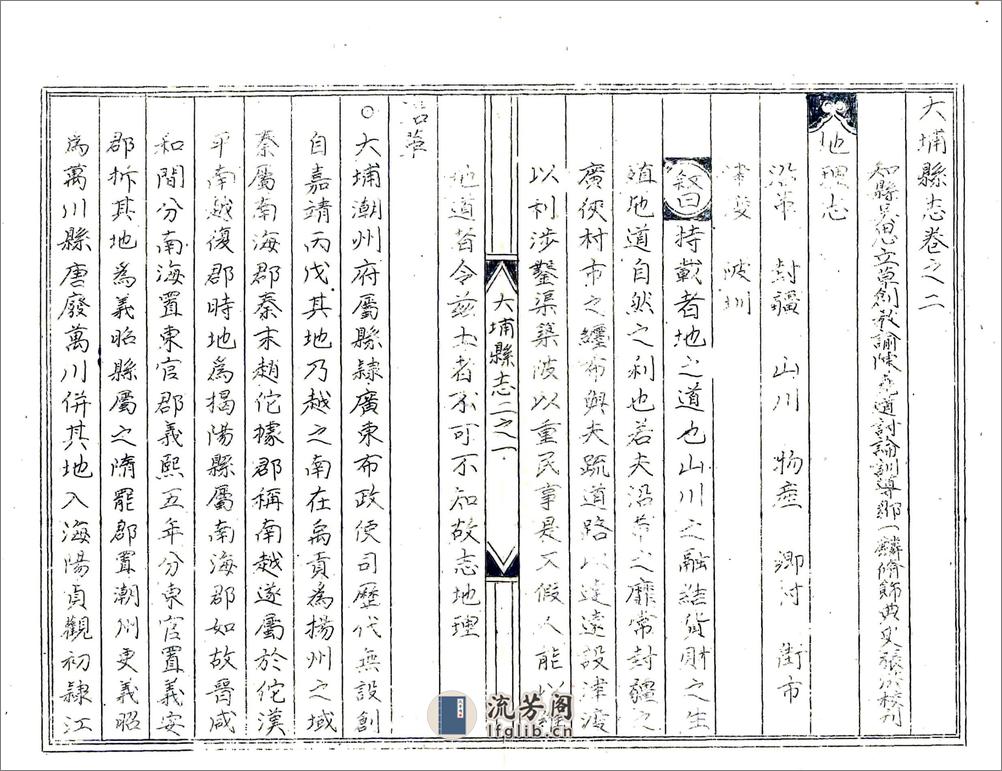 大埔縣志卷之二
知縣吳思立草創教諭陳堯道討論訓導鄒一麟脩飾典史張公校刊
地理志
沿革 封疆 山川 物産 鄉村 街市
津渡 陂圳
叙曰持載者地之道也山川之融結貨財之生
殖地道自然之利也若夫沿革之靡常封疆之
廣俠村市之纏布與夫疏道路以達遠設津渡
以利涉鑿渠築陂以重民事是又假人能以
地道者令茲土者不可不知故志地理
大埔縣志二之一
沿革
○大埔潮州府屬縣隸廣東布政使司歷代無設創
自嘉靖丙戌其地乃越之南在禹貢為揚州之域
秦屬南海郡秦末趙佗據郡稱南越遂屬於佗漢
平南越復郡時地為揭陽縣屬南海郡如故晉咸
和間分南海置東官郡義熙五年分東官置義安
郡拆其地為義昭縣屬之隋罷郡置潮州更義昭
為萬川縣唐廢萬川併其地入海陽貞觀初隸江
流芳阁
lfglib.cn